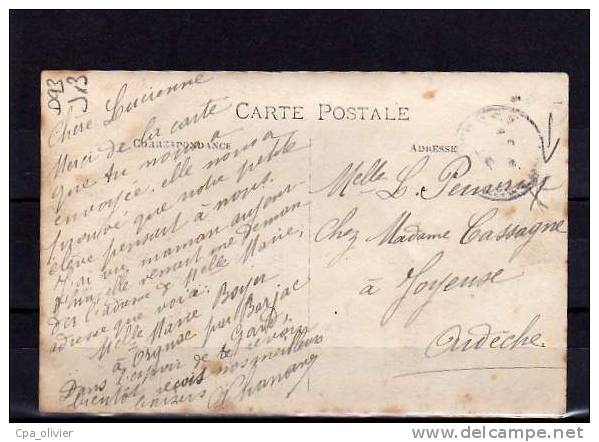 D93
J13
CARTE POSTALE
CORRESPONDANCE
ADRESSE
Chère Lucienne
Merci de la carte
que tu nous a
envoyée, elle nous a
prouvé que notre petite
élève pensait à nous.
J'ai vu maman aujour-
d'hui, elle venait me deman-
der l'adresse de Melle Marie,
adresse que voici.
Melle Marie Boyer
à par Barjac
Gard.
Dans l'espoir de te revoir
bientôt reçois nos meilleurs
baisers
Melle L.
Chez Madame Cassagne
à Joyeuse
Ardèche.
Cpa_olivier
delcampe.net